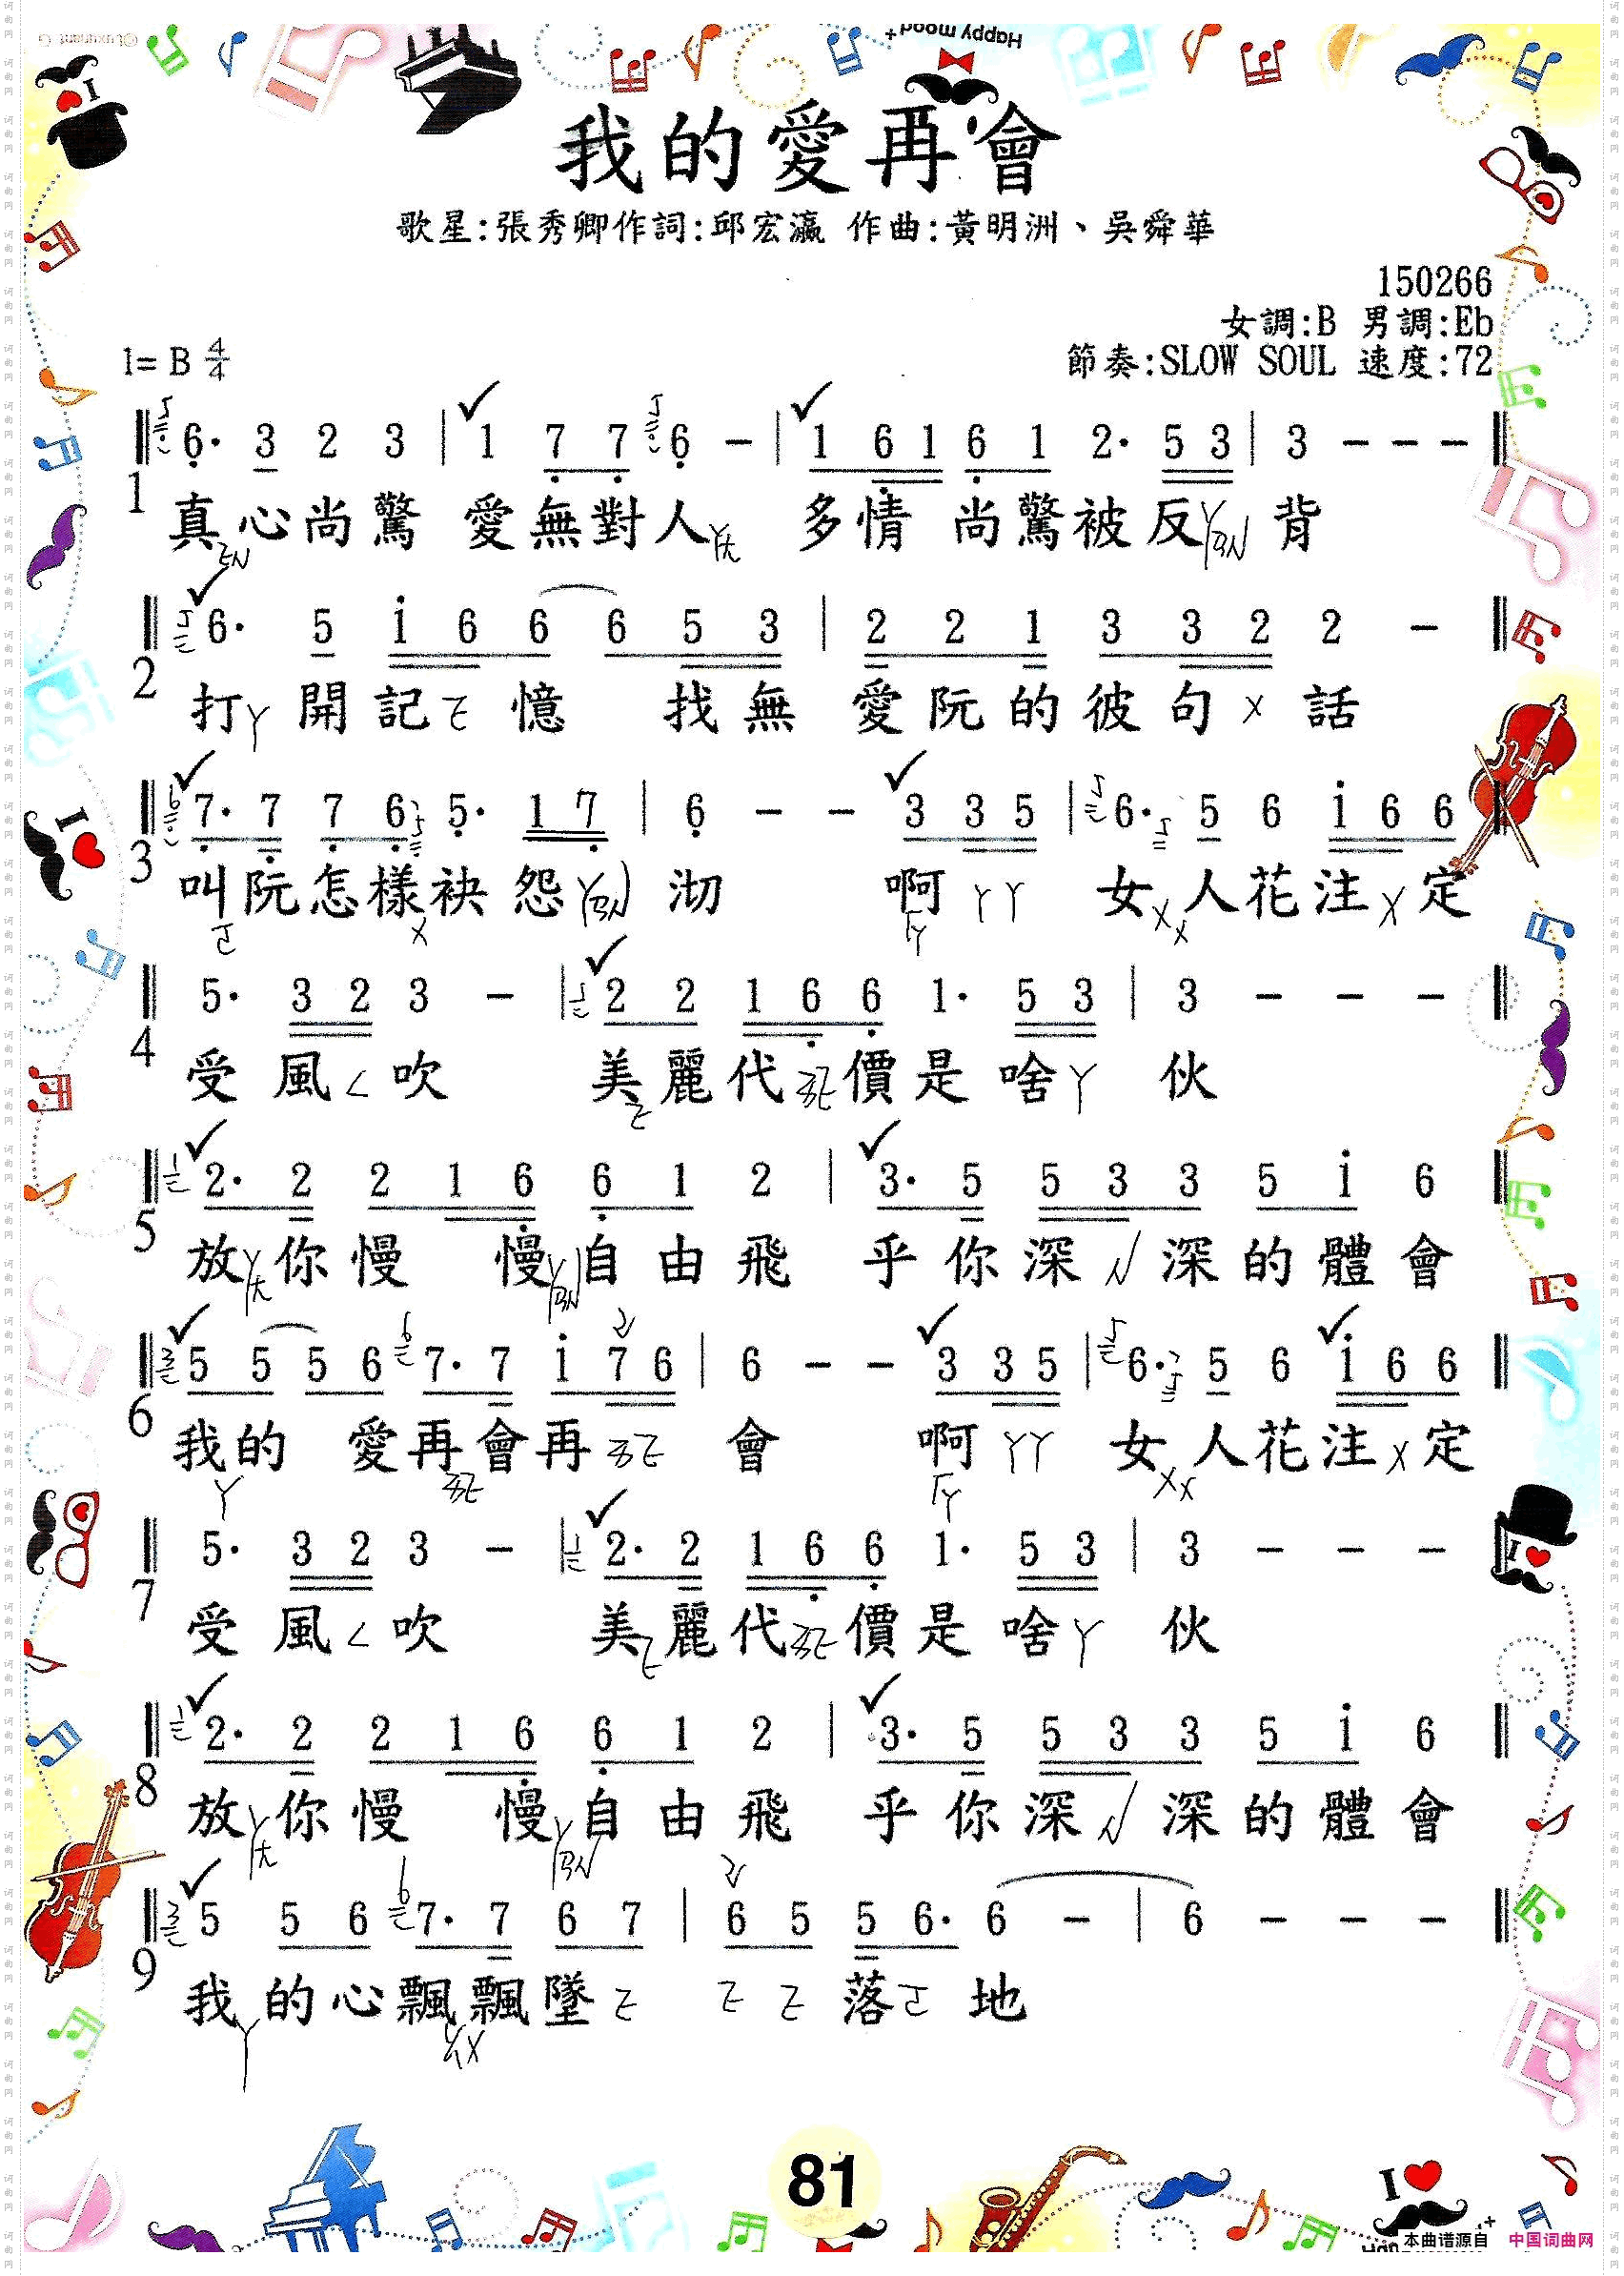 Happy mood+
I
我的愛再會
歌星:張秀卿作詞:邱宏瀛 作曲:黃明洲、吳舜華
150266
女調:B 男調:Eb
1= B 4/4
節奏:SLOW SOUL 速度:72
6· 3 2 3 | 1 7 7 6 - | 1 6 1 6 1 2· 5 3 | 3 - - -
1 真心尚驚 愛無對人 多情 尚驚被反 背
6· 5 i 6 6 6 5 3 | 2 2 1 3 3 2 2 -
2 打ㄚ 開記ㄛ憶 找無 愛阮的彼句ㄨ話
7· 7 7 6 5· 1 7 | 6 - - 3 3 5 | 6· 5 6 i 6 6
3 叫阮怎樣袂怨 沏 啊ㄚㄚ 女ㄨㄨ人花注ㄨ定
5· 3 2 3 - | 2 2 1 6 6 1· 5 3 | 3 - - -
4 受風ㄑ吹 美麗代 價是啥ㄚ 伙
2· 2 2 1 6 6 1 2 | 3· 5 5 3 3 5 i 6
5 放 你慢 慢 自由飛 乎你深 深的體會
5 5 5 6 7· 7 i 7 6 | 6 - - 3 3 5 | 6· 5 6 i 6 6
6 我的 愛再會再 會 啊ㄚㄚ 女ㄨㄨ人花注ㄨ定
5· 3 2 3 - | 2· 2 1 6 6 1· 5 3 | 3 - - -
7 受風ㄑ吹 美麗代 價是啥ㄚ 伙
2· 2 2 1 6 6 1 2 | 3· 5 5 3 3 5 i 6
8 放 你慢 慢 自由飛 乎你深 深的體會
5 5 6 7· 7 6 7 | 6 5 5 6· 6 - | 6 - - -
9 我ㄚ的心飄飄墜ㄛ ㄛ ㄛ 落 地
81
I
本曲谱源自 中国词曲网